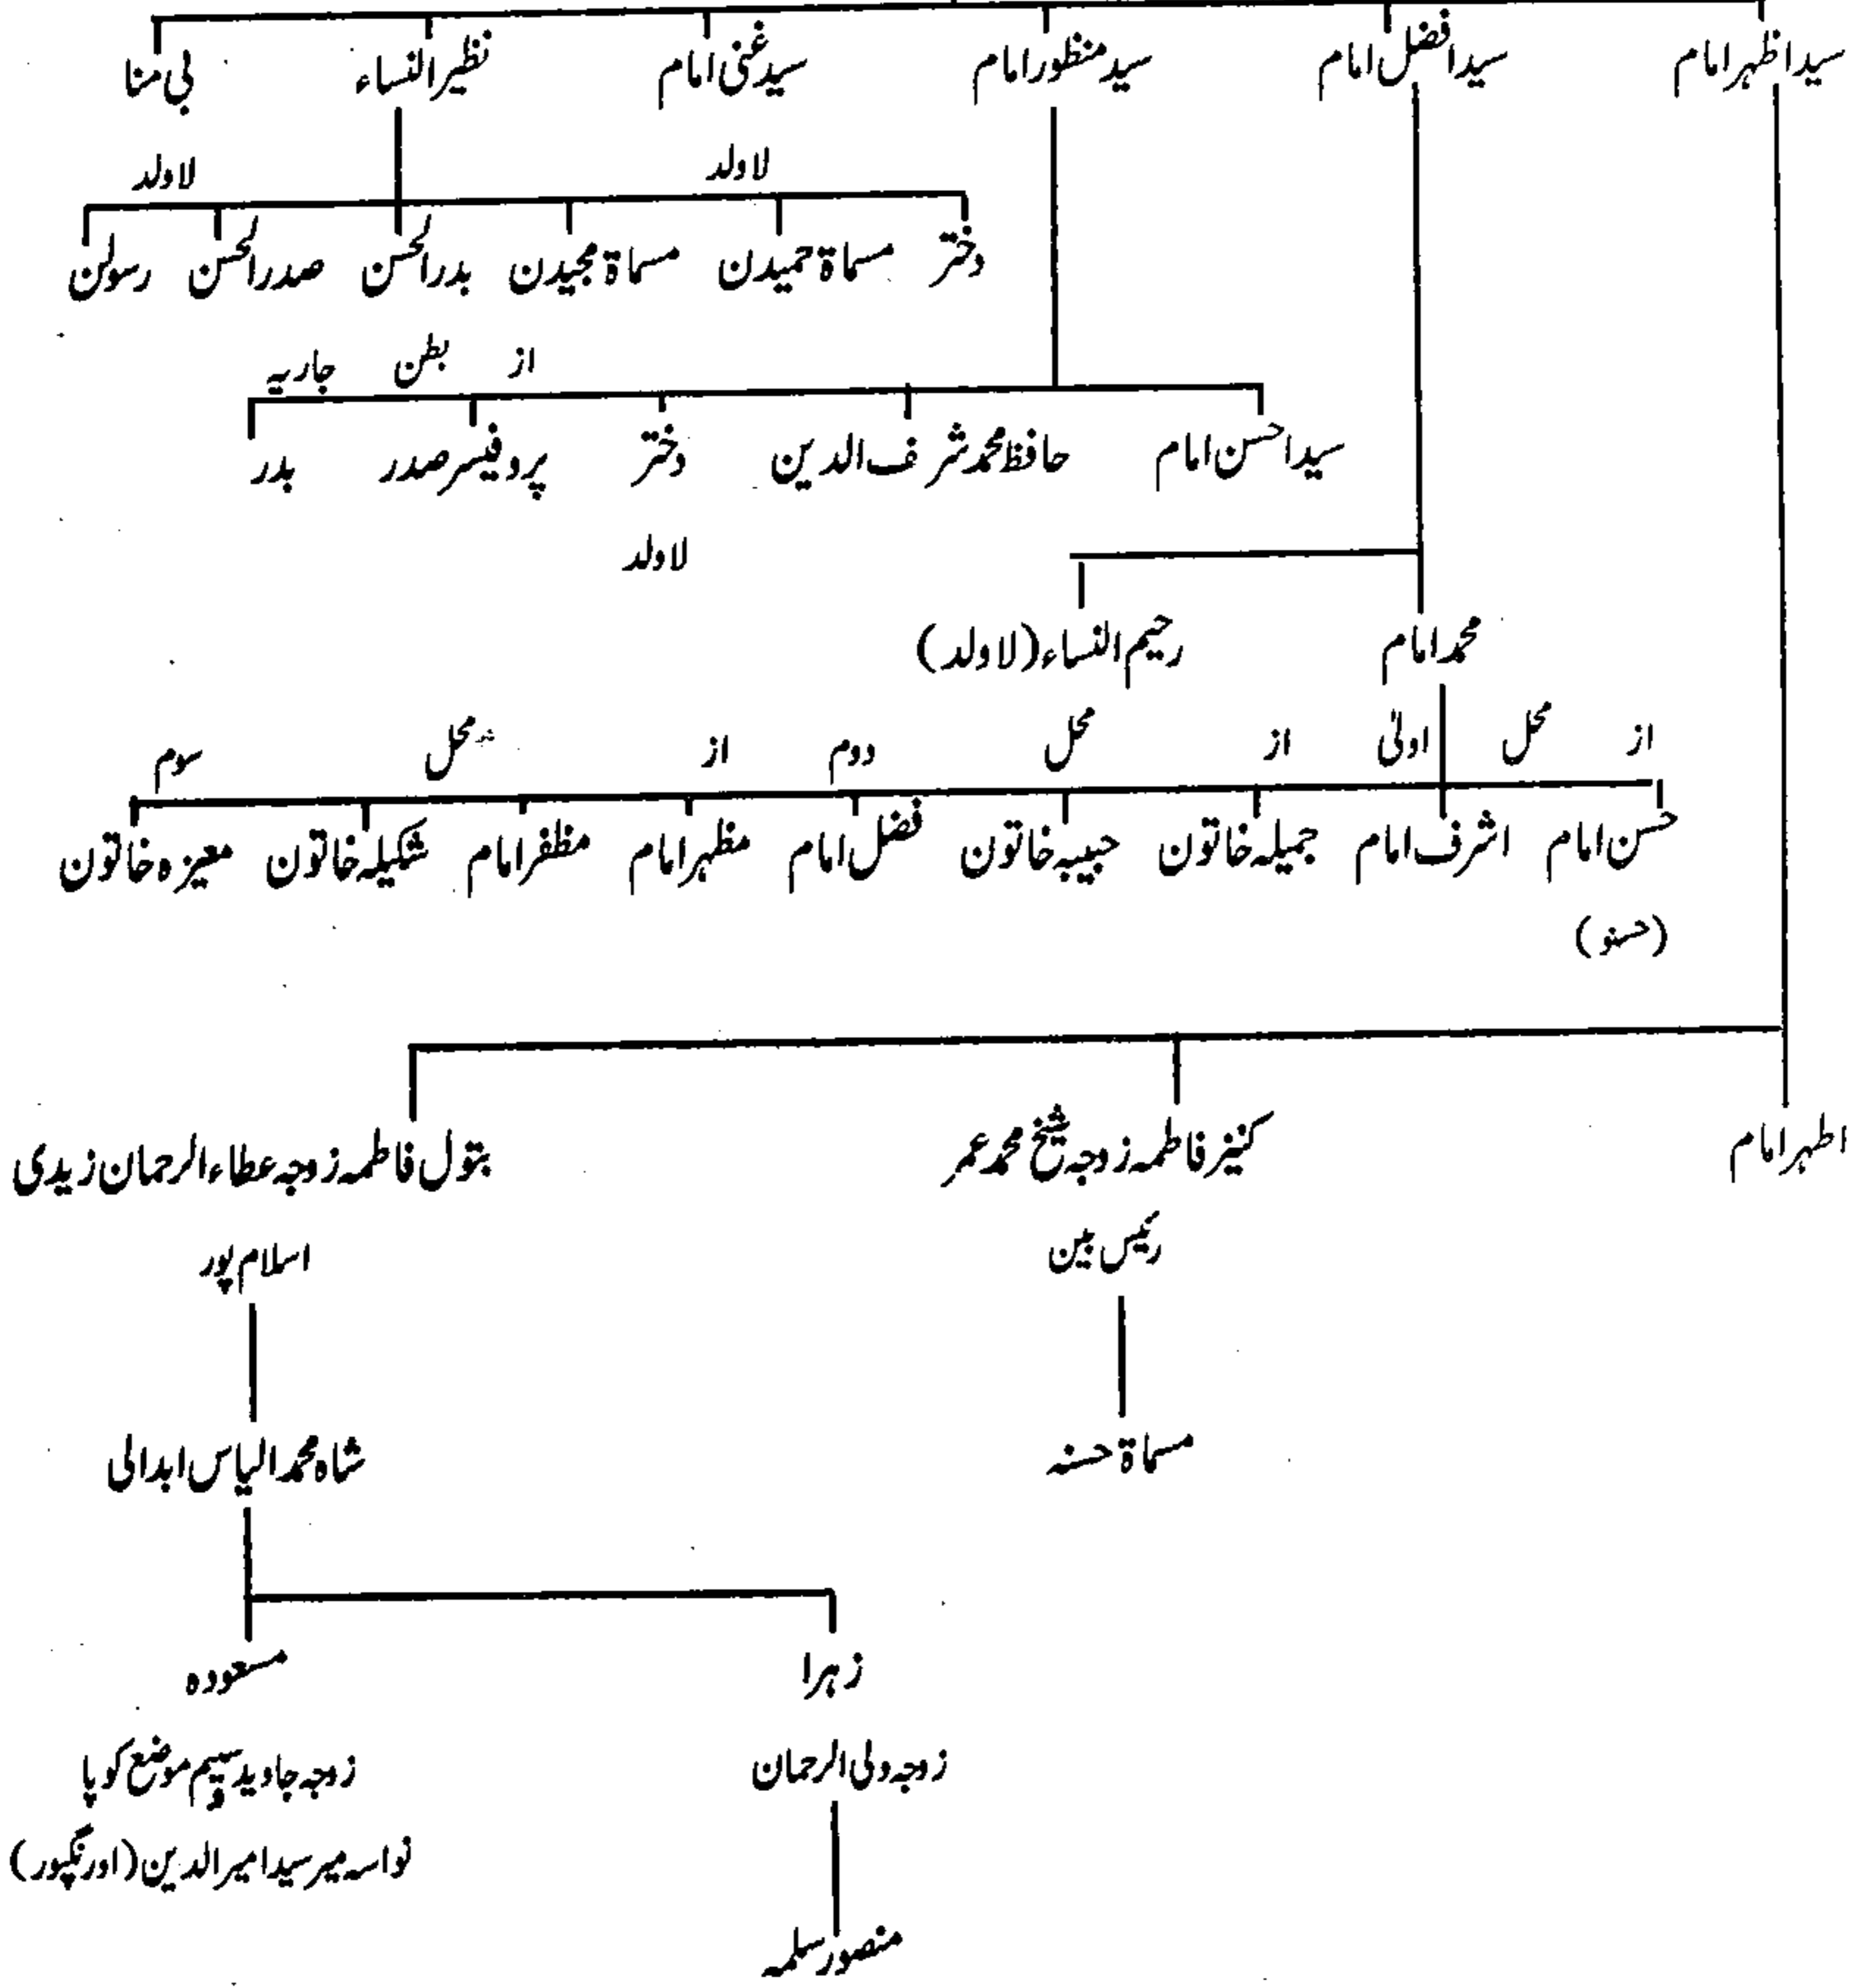 سید اظہر امام سید افضل امام سید منظور امام سید غنی امام نظیر النساء بی منا
لاولد لاولد
دختر مسماۃ حمیدن مسماۃ مجیدن بدر الحسن صدر الحسن رسولن
از بطن جاریہ
سید احسن امام حافظ محمد شرف الدین دختر پروفیسر صدر بدر
لاولد
محمد امام رحیم النساء (لاولد)
از محل اولیٰ از محل دوم از محل سوم
حسن امام اشرف امام جمیلہ خاتون حبیبہ خاتون فضل امام مظہر امام مظفر امام شکیلہ خاتون معیزہ خاتون
(حسنو)
اطہر امام کنیز فاطمہ زوجہ شیخ محمد عمر بتول فاطمہ زوجہ عطاء الرحمان زیدی
رئیس بین اسلام پور
مسماۃ حسنہ شاہ محمد الیاس ابدالی
زہرا مسعودہ
زوجہ ولی الرحمان زوجہ جاوید موضع کوپا
نواسہ میر سید امیر الدین (اورنگپور)
منصور سلمہ